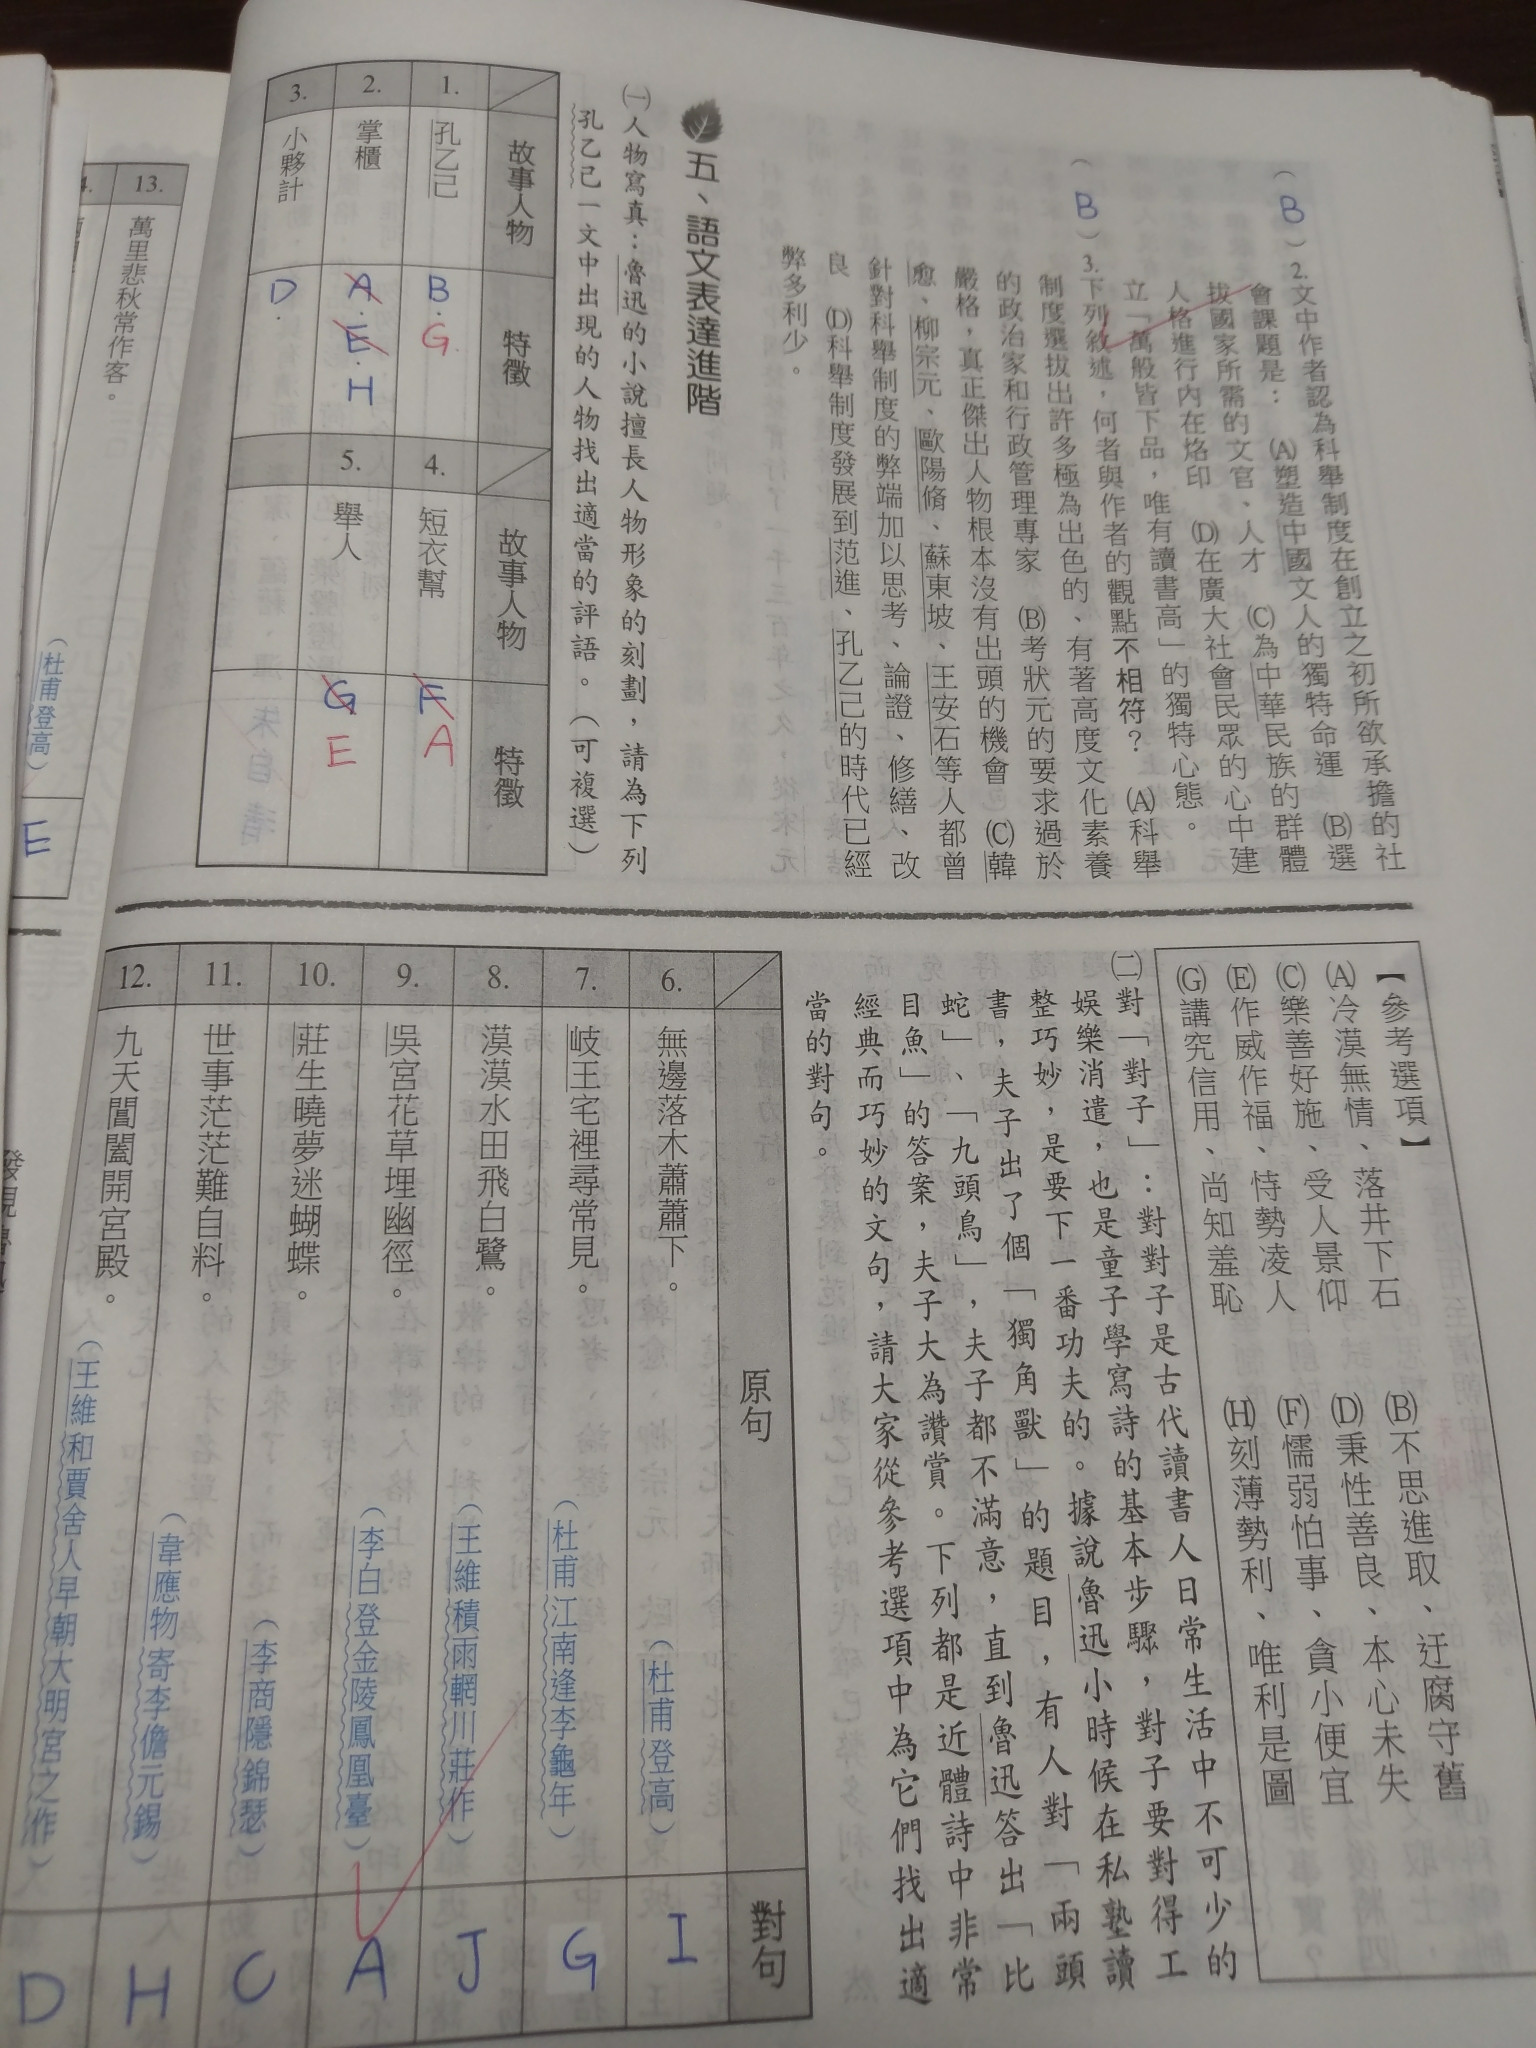 (B)2.文中作者認為科舉制度在創立之初所欲承擔的社
會課題是： (A)塑造中國文人的獨特命運 (B)選
拔國家所需的文官、人才 (C)為中華民族的群體
人格進行內在烙印 (D)在廣大社會民眾的心中建
立「萬般皆下品，唯有讀書高」的獨特心態。
(B)3.下列敘述，何者與作者的觀點不相符？ (A)科舉
制度選拔出許多極為出色的、有著高度文化素養
的政治家和行政管理專家 (B)考狀元的要求過於
嚴格，真正傑出人物根本沒有出頭的機會 (C)韓
愈、柳宗元、歐陽脩、蘇東坡、王安石等人都曾
針對科舉制度的弊端加以思考、論證、修繕、改
良 (D)科舉制度發展到范進、孔乙己的時代已經
弊多利少。
五、語文表達進階
㈠人物寫真：魯迅的小說擅長人物形象的刻劃，請為下列
孔乙己一文中出現的人物找出適當的評語。（可複選）
故事人物 特徵 故事人物 特徵
1. 孔乙己 B.G. 4. 短衣幫 F A
2. 掌櫃 A.E.H 5. 舉人 G E
3. 小夥計 D.
【參考選項】
(A)冷漠無情、落井下石 (B)不思進取、迂腐守舊
(C)樂善好施、受人景仰 (D)秉性善良、本心未失
(E)作威作福、恃勢凌人 (F)懦弱怕事、貪小便宜
(G)講究信用、尚知羞恥 (H)刻薄勢利、唯利是圖
㈡對「對子」：對對子是古代讀書人日常生活中不可少的
娛樂消遣，也是童子學寫詩的基本步驟，對子要對得工
整巧妙，是要下一番功夫的。據說魯迅小時候在私塾讀
書，夫子出了個「獨角獸」的題目，有人對「兩頭
蛇」、「九頭鳥」，夫子都不滿意，直到魯迅答出「比
目魚」的答案，夫子大為讚賞。下列都是近體詩中非常
經典而巧妙的文句，請大家從參考選項中為它們找出適
當的對句。
原句 對句
6. 無邊落木蕭蕭下。（杜甫登高） I
7. 岐王宅裡尋常見。（杜甫江南逢李龜年） G
8. 漠漠水田飛白鷺。（王維積雨輞川莊作） J
9. 吳宮花草埋幽徑。（李白登金陵鳳凰臺） A
10. 莊生曉夢迷蝴蝶。（李商隱錦瑟） C
11. 世事茫茫難自料。（韋應物寄李儋元錫） H
12. 九天閶闔開宮殿。（王維和賈舍人早朝大明宮之作） D
13. 萬里悲秋常作客。（杜甫登高） E